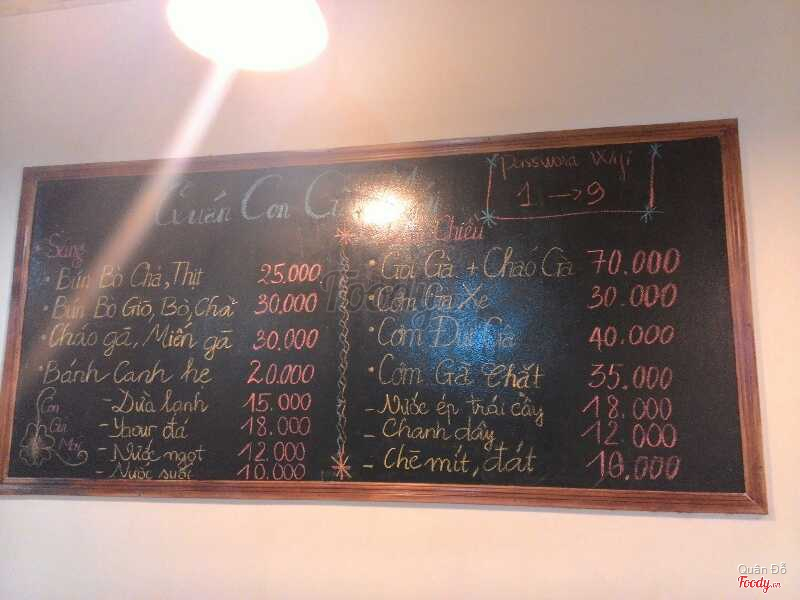 Password Wifi
1 → 9
Quán Cơn Gió
Sáng
• Bún Bò Chả, Thịt 25.000
• Bún Bò Giò, Bò, Chả 30.000
• Cháo gà, Miến gà 30.000
• Bánh Canh hẹ 20.000
- Dừa lạnh 15.000
- Yaour đá 18.000
- Nước ngọt 12.000
- Nước suối 10.000
Cơn
Gió
Chiều
• Gỏi Gà + Cháo Gà 70.000
• Cơm Gà Xé 30.000
• Cơm Đùi Gà 40.000
• Cơm Gà Chặt 35.000
- Nước ép trái cây 18.000
- Chanh dây 12.000
- Chè mít, đát 10.000
Foody
Quân Đỗ
Foody.vn